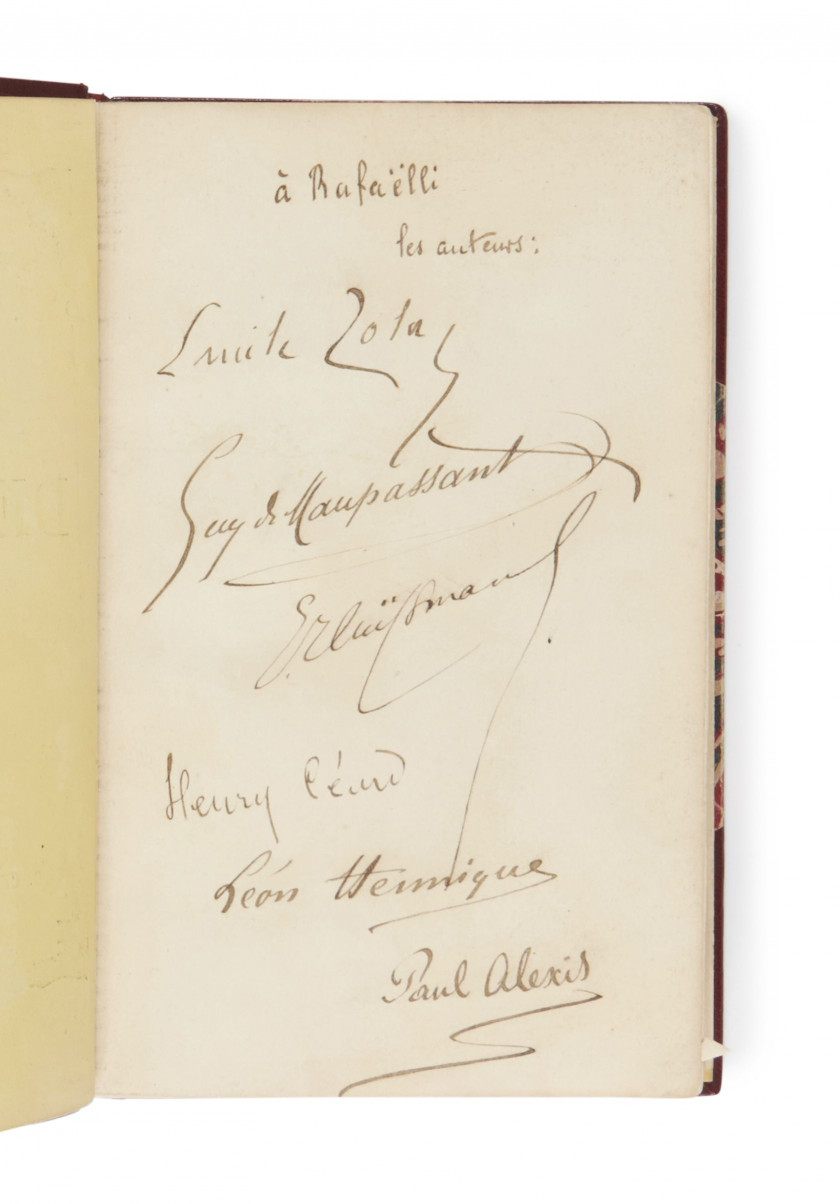 à Rafaëlli
les auteurs:
Emile Zola
Guy de Maupassant
Henry Céard
Léon Hennique
Paul Alexis